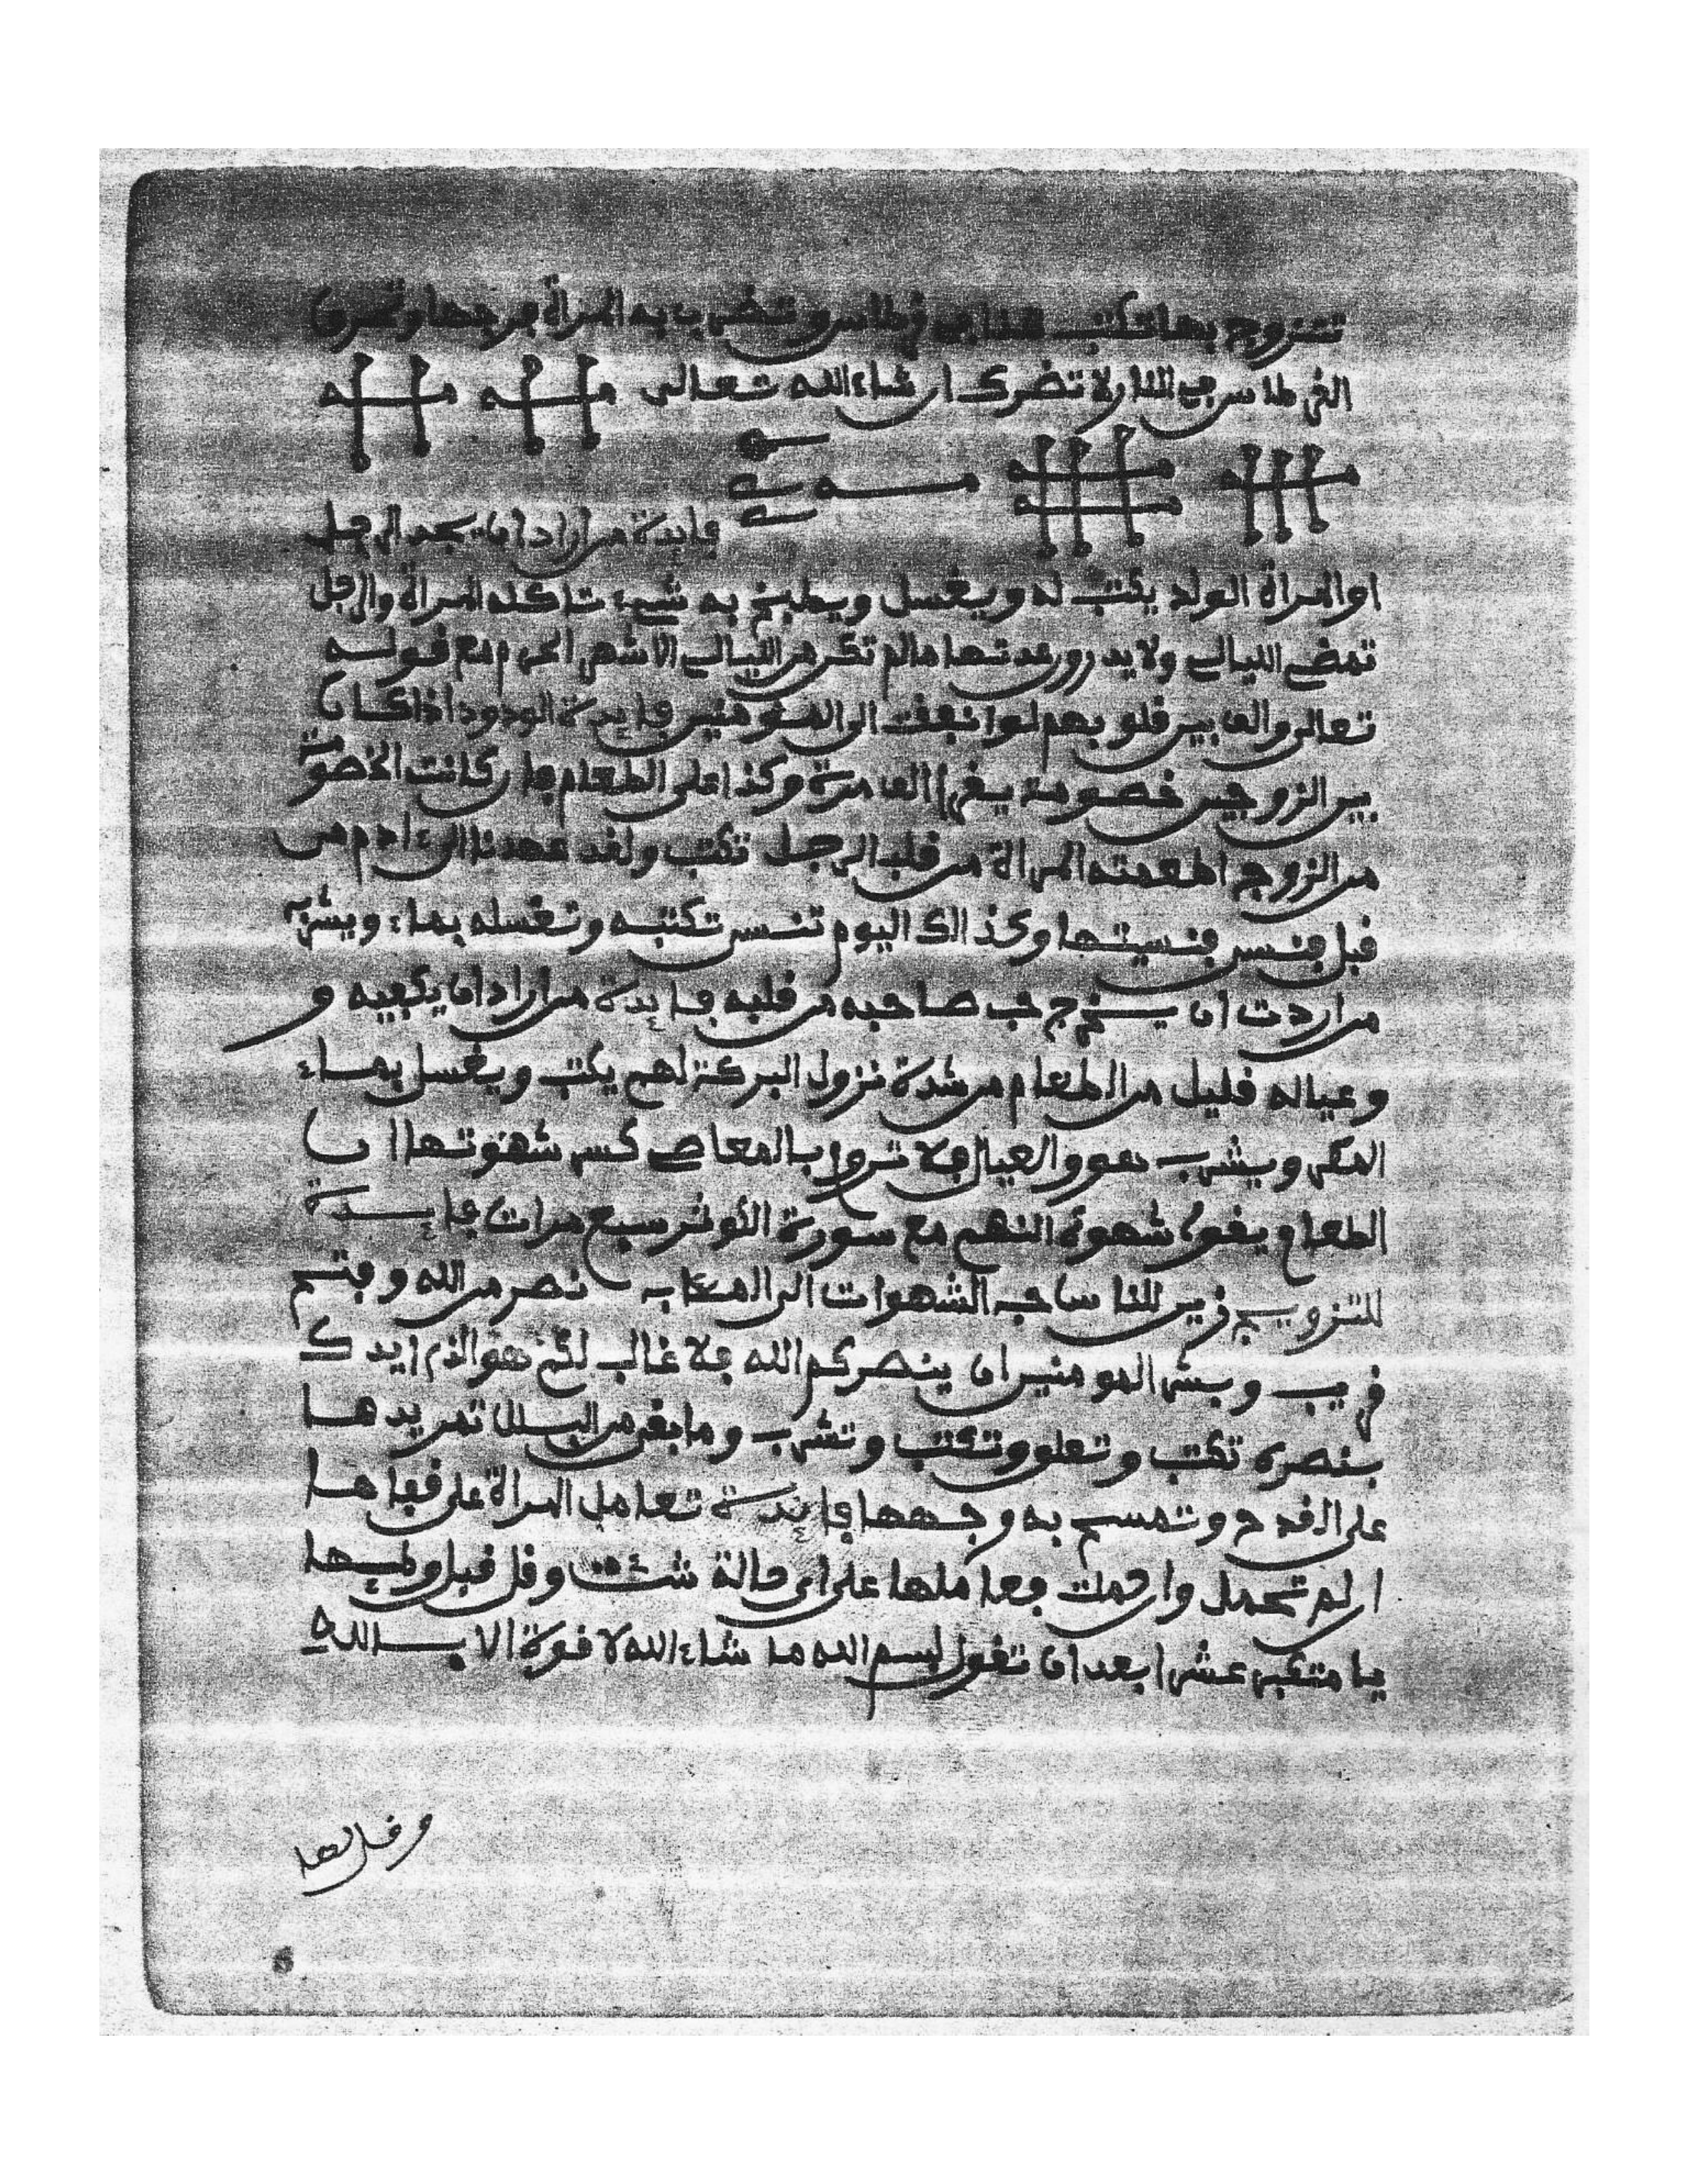 تتزوج بها تكتب هذا في قرطاس وتضرب به المرأة فرجها وتحرق
القرطاس في النار لا تضرك ان شاء الله تعالى
فايدة من اراد ان يجد الرجل
او المرأة الولد يكتب له ويغسل ويطبخ به شيء تاكله المرأة والرجل
تمضي الليالي ولا يدرون عدتها مالم تكن من الليالي الاشهر الحرم مع قولــه
تعالى والف بين قلوبهم لو انفقت الى المومنين فايدة الودود اذا كان
بين الزوجين خصومة يقرا الف مرة وكذا على الطعام فان كانت الخصومة
من الزوج اطعمته المرأة من قلب الرجل تكتب ولقد عهدنا الى ءادم من
قبل فنسى فنسيتها وكذالك اليوم تنسى تكتبه وتغسله بماء ويشربه
من اردت ان يخرج حب صاحبه من قلبه فايدة من اراد ان يكفيه و
وعياله قليل من الطعام من شدة نزول البركة لهم يكتب ويغسل بماء
المكر ويشرب هو والعيال فلا تروا بالمعاصي كسر شهوتها ان
الطعام يقوي شهوة النهم مع سورة الكوثر سبع مرات فايــدة
للتزويج زين للناس حب الشهوات الى المئاب نصر من الله وفتح
قريب وبشر المومنين ان ينصركم الله فلا غالب لكم هو الذي ايدك
بنصره تكتب وتعلق وتكتب وتشرب وما بقي من البلل تمر يدها
على القدح وتمسح به وجهها فايدة تعامل المرأة على قفاها
ان لم تحمل وان حملت فعاملها على اي حالة شئت وقل قبل وطيها
يا متكبر عشرا بعد ان تقول بسم الله ما شاء الله لا قوة الا بــالله
وقل لها
6